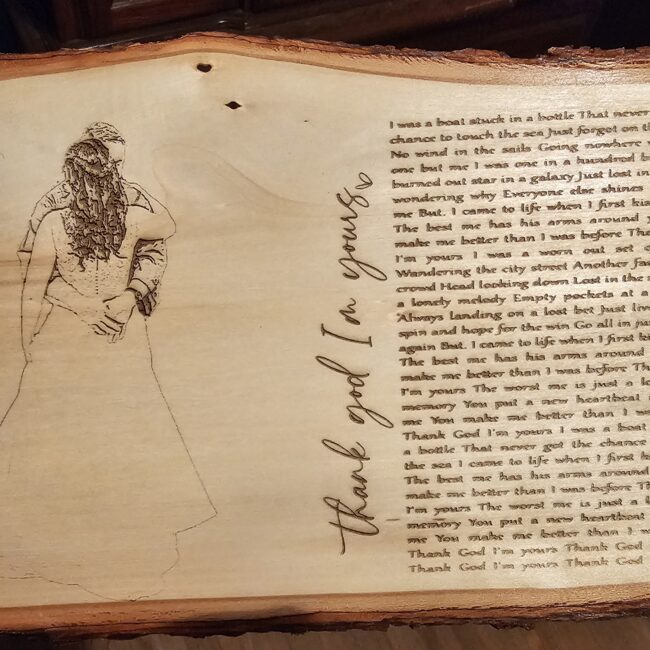 thank god I'm yours
I was a boat stuck in a bottle That never
chance to touch the sea Just forgot on th
No wind in the sails Going nowhere
one but me I was one in a hundred b
burned out star in a galaxy Just lost in
wondering why Everyone else shines
me But. I came to life when I first kis
The best me has his arms around y
make me better than I was before Tha
I'm yours I was a worn out set o
Wandering the city street Another fac
crowd Head looking down Lost in the
a lonely melody Empty pockets at a
Always landing on a lost bet Just liv
spin and hope for the win Go all in jus
again But. I came to life when I first ki
The best me has his arms around
make me better than I was before Th
I'm yours The worst me is just a lo
memory You put a new heartbeat i
me You make me better than I wa
Thank God I'm yours I was a boat
a bottle That never got the chance
the sea I came to life when I first k
The best me has his arms around
make me better than I was before Th
I'm yours The worst me is just a l
memory You put a new heartbeat
me You make me better than I w
Thank God I'm yours Thank God
Thank God I'm yours Thank God